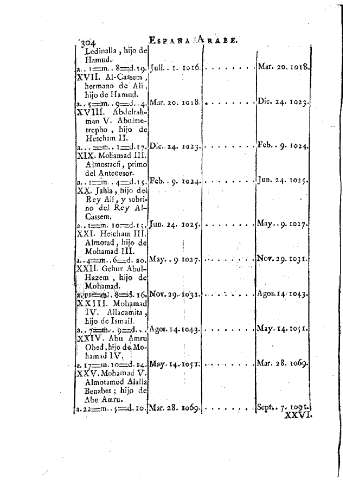 304 ESPAÑA ARABE.
Ledirolla, hijo de
Hamud.
a.. 1=m. 8=d.19. Jull.. 1. 1016. Mar. 20. 1018.
XVII. Al-Cassem,
hermano de Ali,
hijo de Hamud.
a.. 5=m. 9=d.. 4. Mar. 20. 1018. Dic. 24. 1023.
XVIII. Abdelrah-
man V. Abulmo-
trepho, hijo de
Hescham II.
m.. 1=d.17. Dic. 24. 1023. Feb.. 9. 1024.
XIX. Mohamad III.
Almostacfi, primo
del Antecesor.
a.. 1=m.. 4=d.15. Feb.. 9. 1024. Jun. 24. 1025.
XX. Jahia, hijo del
Rey Ali, y subri-
no del Rey Al-
Cassem.
a.. 1=m. 10=d.15. Jun. 24. 1025. May.. 9. 1027.
XXI. Hescham III.
Almorad, hijo de
Mohamad III.
a.. 4=m.. 6=d. 20. May.. 9. 1027. Nov. 29. 1031.
XXII. Gehur Abul-
Hazem, hijo de
Mohamad.
8=d. 16. Nov. 29. 1031. Agos. 14. 1043.
XXIII. Mohamad
IV. Allacamita,
hijo de Ismail.
a.. 7=m.. 9=d. Agos. 14. 1043. May. 14. 1051.
XXIV. Abu Amru
Obed, hijo de Mo-
hamad IV.
a. 17=m. 10=d. 14. May. 14. 1051. Mar. 28. 1069.
XXV. Mohamad V.
Almotamed Alalla
Benabet; hijo de
Abu Amru.
a. 22=m.. 5=d. 10. Mar. 28. 1069. Sept.. 7. 1091.
XXVI.